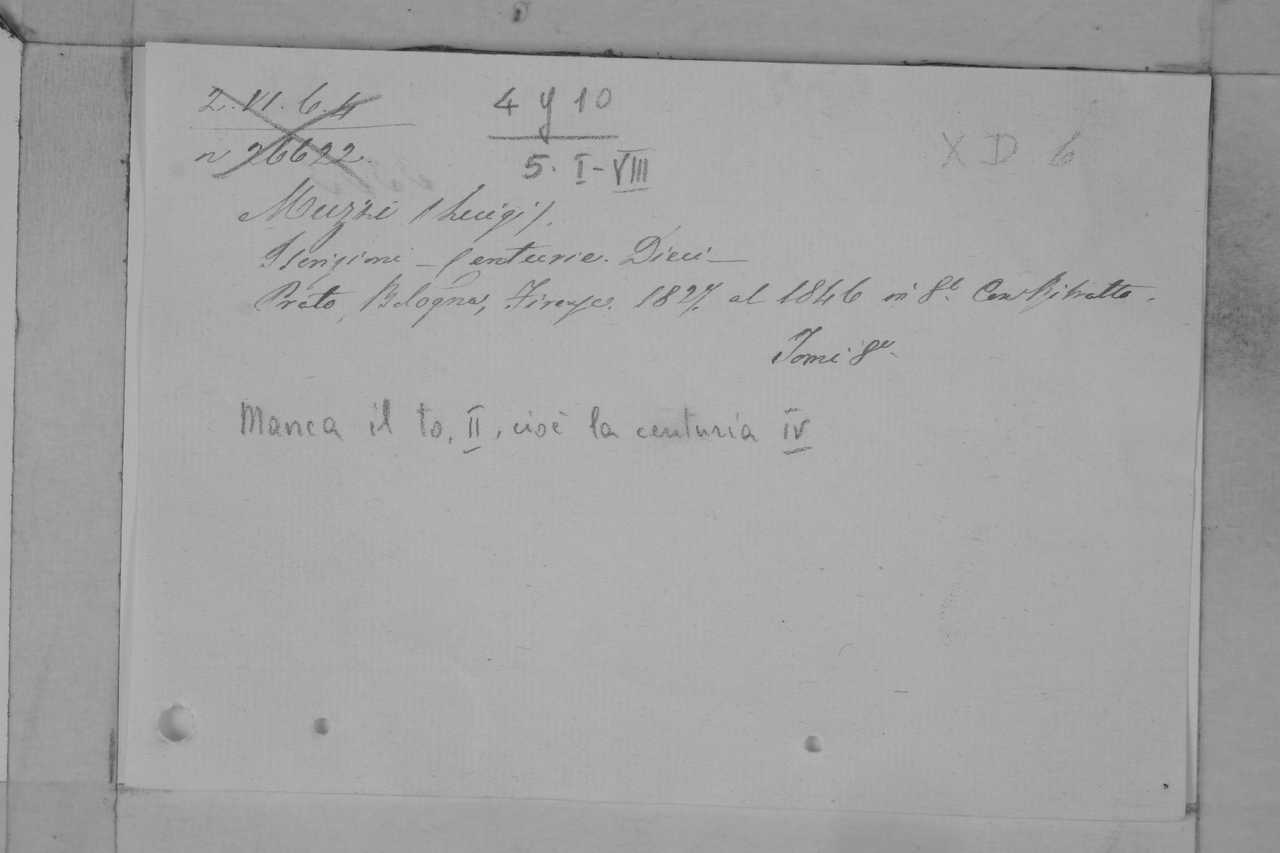 2.VI.6.4
4 y 10
n 26622.
5. I-VIII
X D 6
Muzzi (Luigi).
Iscrizioni - Centurie. Dieci -
Prato, Bologna, Firenze. 1827. al 1846 in 8º. Con Ritratto.
Tomi 8º.
Manca il to. II, cioè la centuria IV